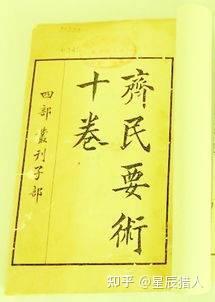 齊民要術
十卷
四部叢刊子部
知乎 @星辰猎人